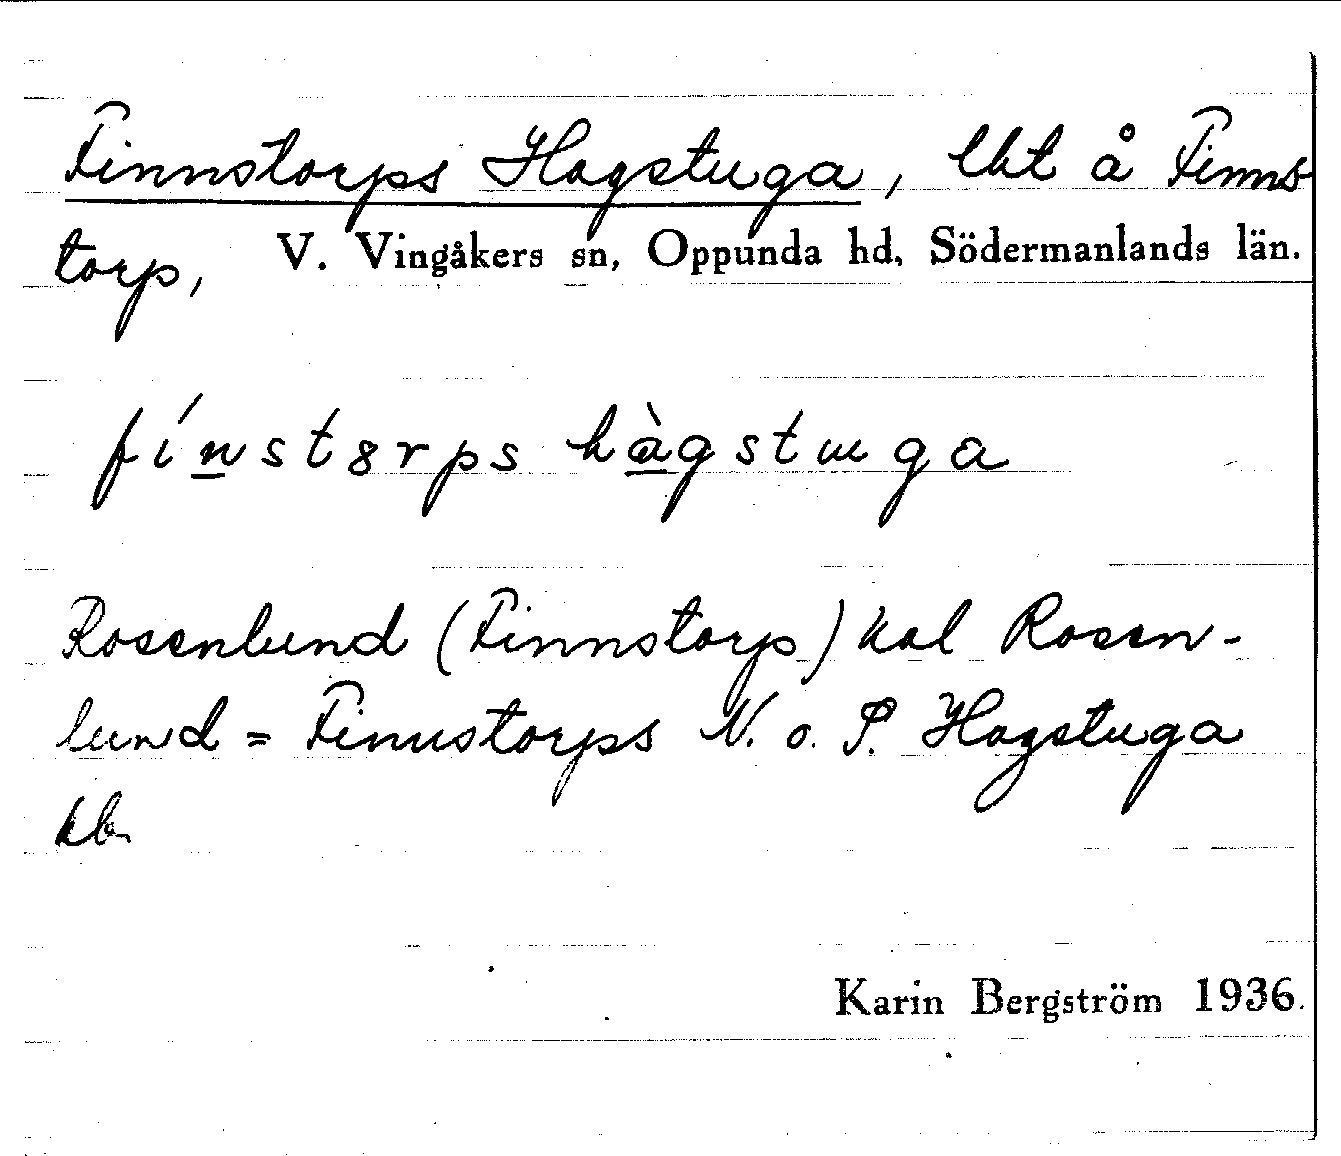 Finnstorps Hagstuga, lht å Finns-
torp, V. Vingåkers sn, Oppunda hd, Södermanlands län.
fínstȣrps hàgstɯga
Rosenlund (Finnstorp) kal Rosen-
lund = Finnstorps N. o. S. Hagstuga
kb.
Karin Bergström 1936.